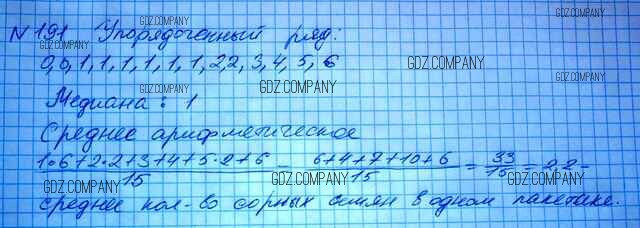 GDZ.COMPANY GDZ.COMPANY GDZ.COMPANY
№191 Упорядоченный ряд:
0,0,1,1,1,1,1,1,2,2,3,4,5,6
GDZ.COMPANY GDZ.COMPANY GDZ.COMPANY
Медиана: 1
Среднее арифметическое
GDZ.COMPANY GDZ.COMPANY GDZ.COMPANY
1·6+2·2+3+4+5·2+6 = 6+4+7+10+6 = 33 = 2,2 -
15 15 15
GDZ.COMPANY GDZ.COMPANY GDZ.COMPANY
среднее кол-во сорных семян в одном пакетике.